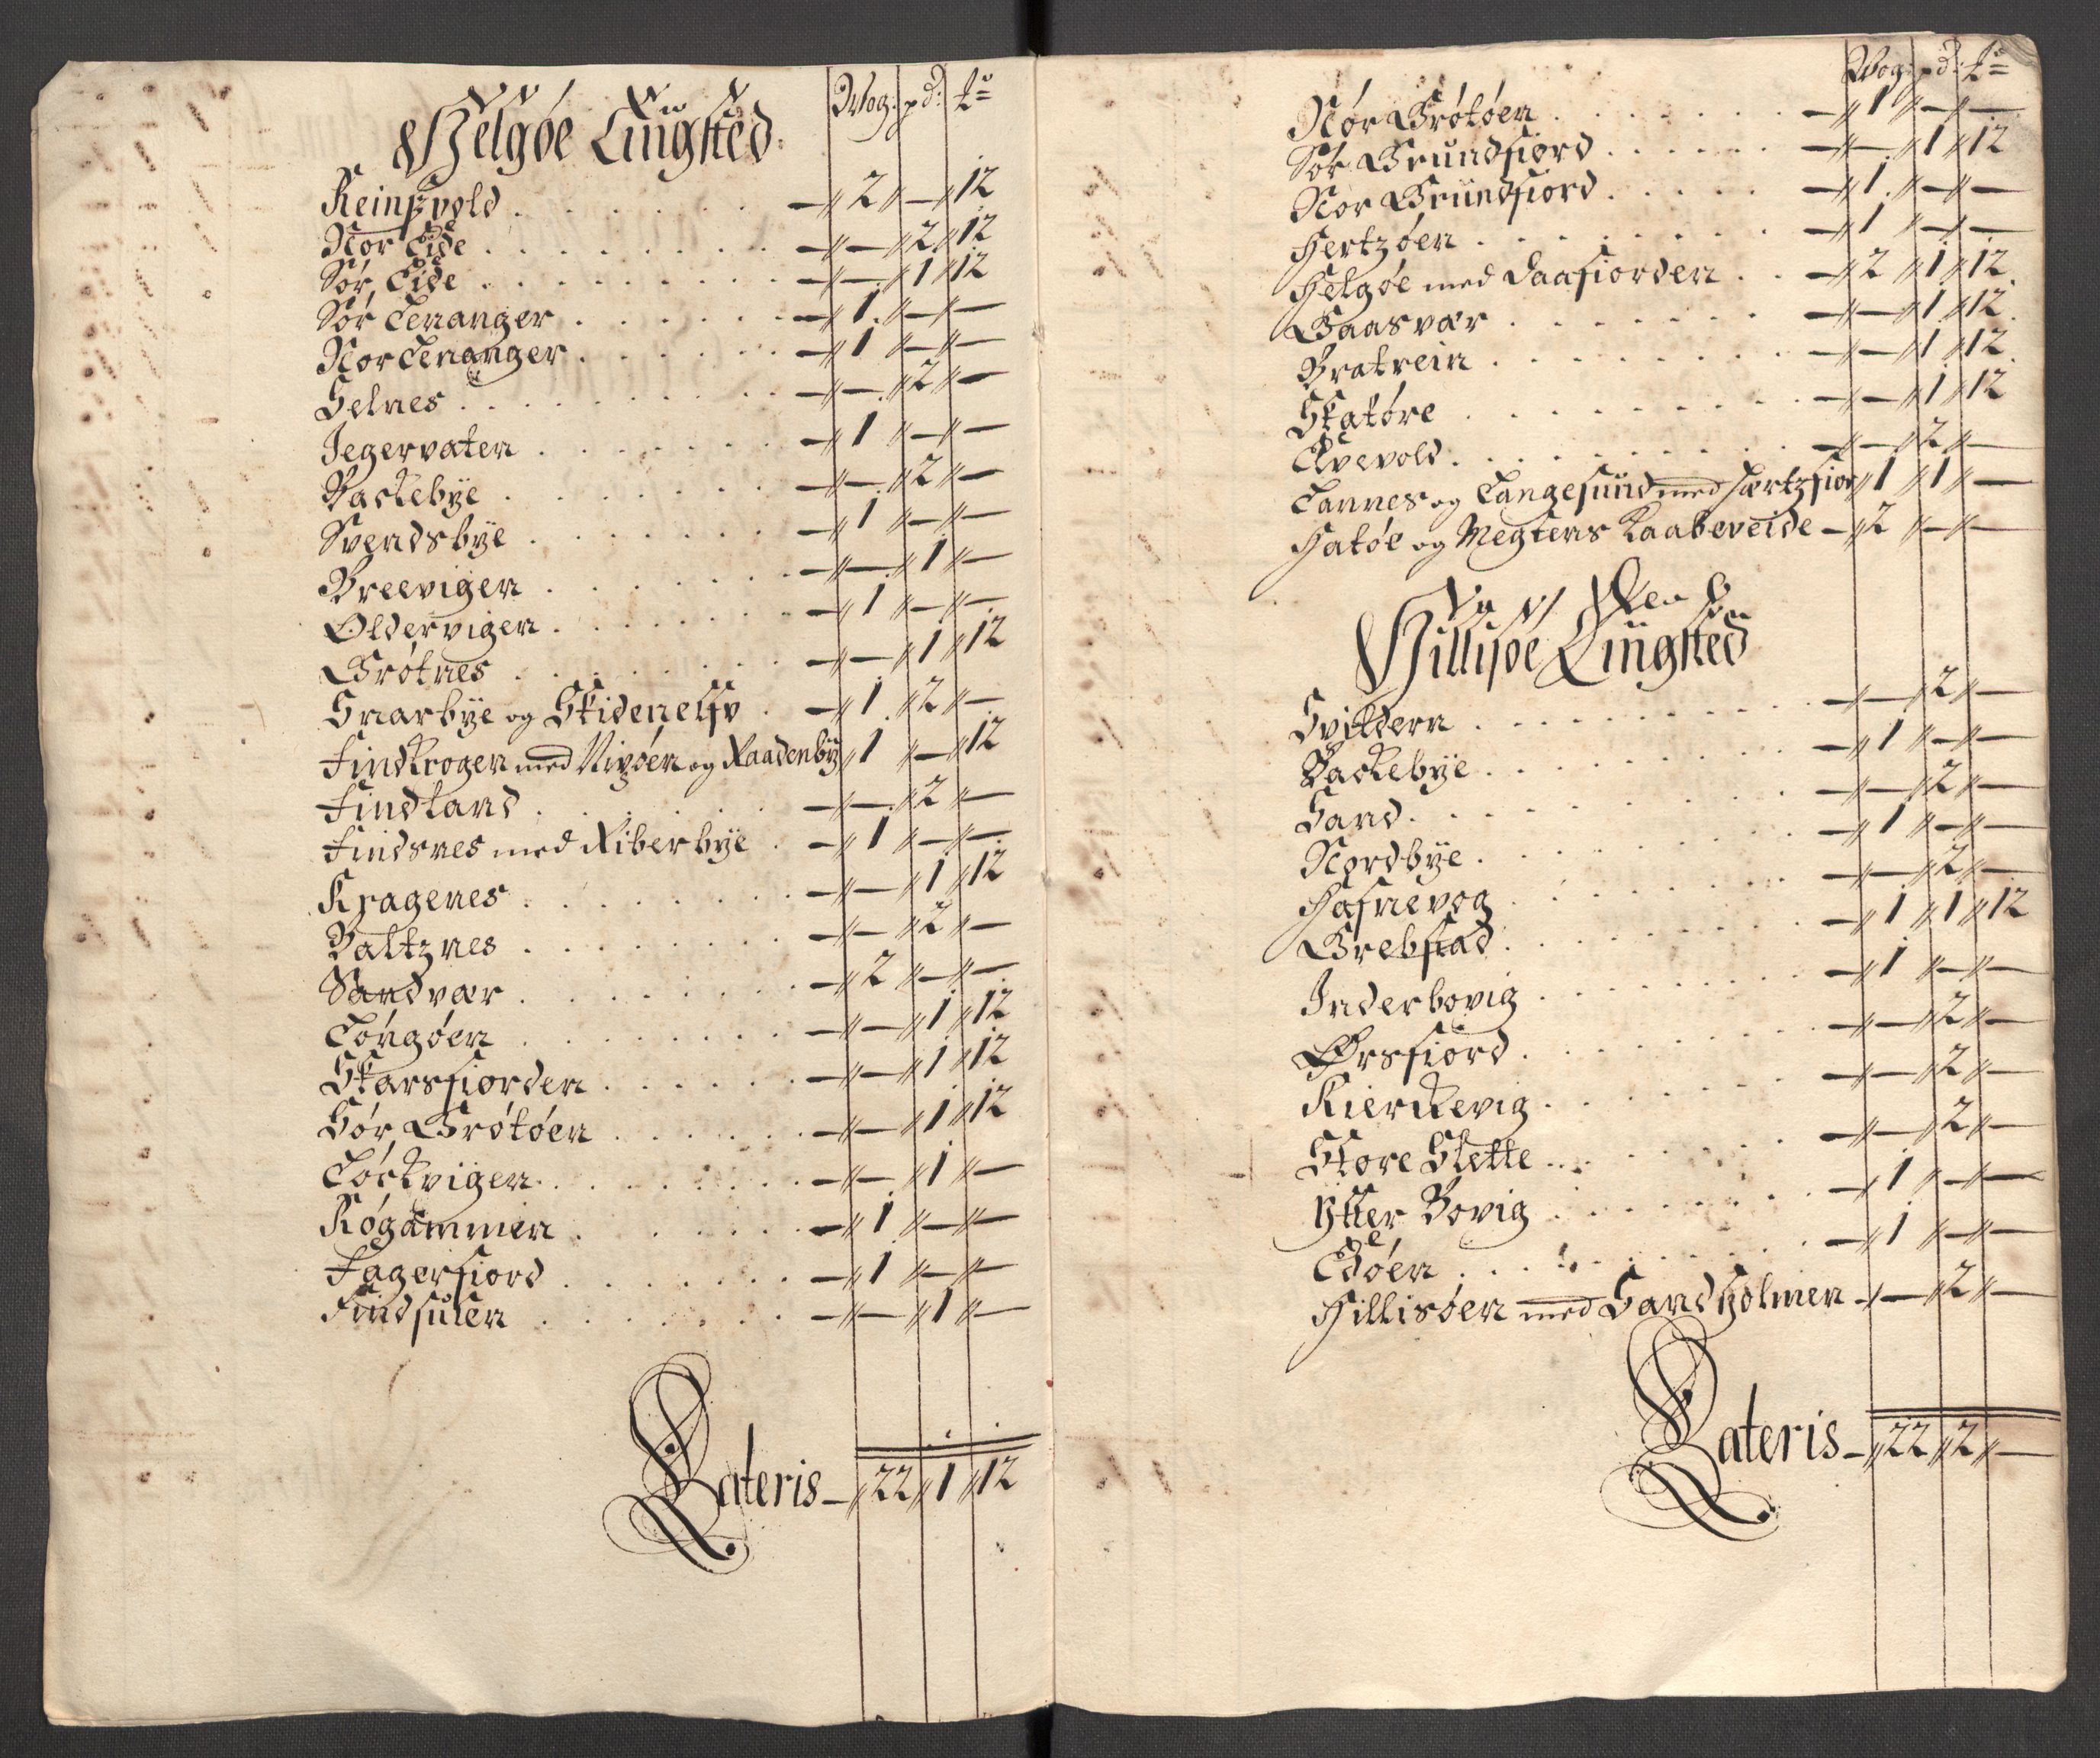 Helgøe Tingsted. Wog: pd: lb
Reinsvold . . . — 2 — 12
Nor Eide . . . — — 2 12
Sør Eide . . . — — 1 12
Sør Lenanger . . . — 1 — —
Nor Lenanger . . . — 1 — —
Selnes . . . — — 2 —
Jegervaten . . . — 1 — —
Backebÿe . . . — — 2 —
Svendsbÿe . . . — 1 — —
Breevigen . . . — — 1 —
Oldervigen . . . — 1 — —
Grøtnes . . . — — 1 12
Snarbÿe og Skidenelfv . — 1 2 —
Findkrogen med Nivøen og Raadenbÿ 1 — 12
Findland . . . — — 2 —
Findsnes med Riberbÿe . — 1 — —
Kragenes . . . — — 1 12
Baltznes . . . — — 2 —
Sandvær . . . — 2 — —
Tøngøen . . . — — 1 12
Skarsfiorden . . . — — 1 12
Sør Grøtøen . . . — — 1 12
Tørkvigen . . . — — 1 —
Røgammen . . . — 1 — —
Fagerfiord . . . — 1 — —
Findsulen . . . — — 1 —
Lateris — 22 1 12
Wog: pd: lb
Nør Grøtøen . . . — 1 — —
Sør Grundfiord . . . — — 1 12
Nor Grundfiord . . . — 1 — —
Hertzøen . . . — 1 — —
Helgøe med Daafiorden . . — 2 1 12
Gaasvær . . . — — 1 12
Bratrein . . . — — 1 12
Skatøre . . . — — 1 12
Elvevold . . . — — 2 —
Tannes og Langesund med Hærtzfior 1 1 —
Hatøe og Megtens Kaabeveide — 2 — —
Hillisøe Tingsted
Sviklern . . . — — 2 —
Backebÿe . . . — 1 — —
Sand . . . — — 2 —
Nordbÿe . . . — 1 — —
Hafnevog . . . — — 2 —
Grebstad . . . — 1 1 12
Inderbovig . . . — 1 — —
Ørsfiord . . . — — 2 —
Kierckevig . . . — — 2 —
Store Slette . . . — — 2 —
Ÿtter Bovig . . . — 1 — —
Edøen . . . — 1 — —
Hillisøen med Sandholmen — — 2 —
Lateris — 22 2 —